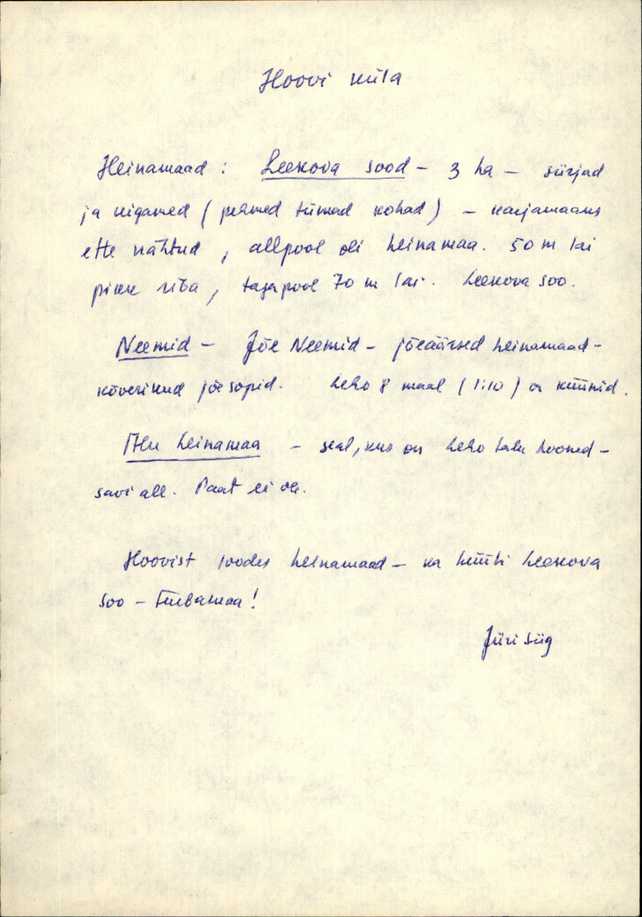 Hoovi küla
Heinamaad : Leekova sood – 3 ha –
ja (pehmed tümad kohad) – karjamaaks
ette nähtud, allpool oli heinamaa. 50 m lai
pikk riba, tagapool 70 m lai. Leekova soo.
Neemid – Jõe Neemid – jõeäärsed heinamaad –
kõverikud jõesopid. Leho 8 maal (1:10) on küünid.
heinamaa – seal, kus on Leho talu hooned –
savi all. Paat ei ole.
Hoovist loodes heinamaad – ka hüüti Leekova
soo – Turbamaa!
Jüri Siig